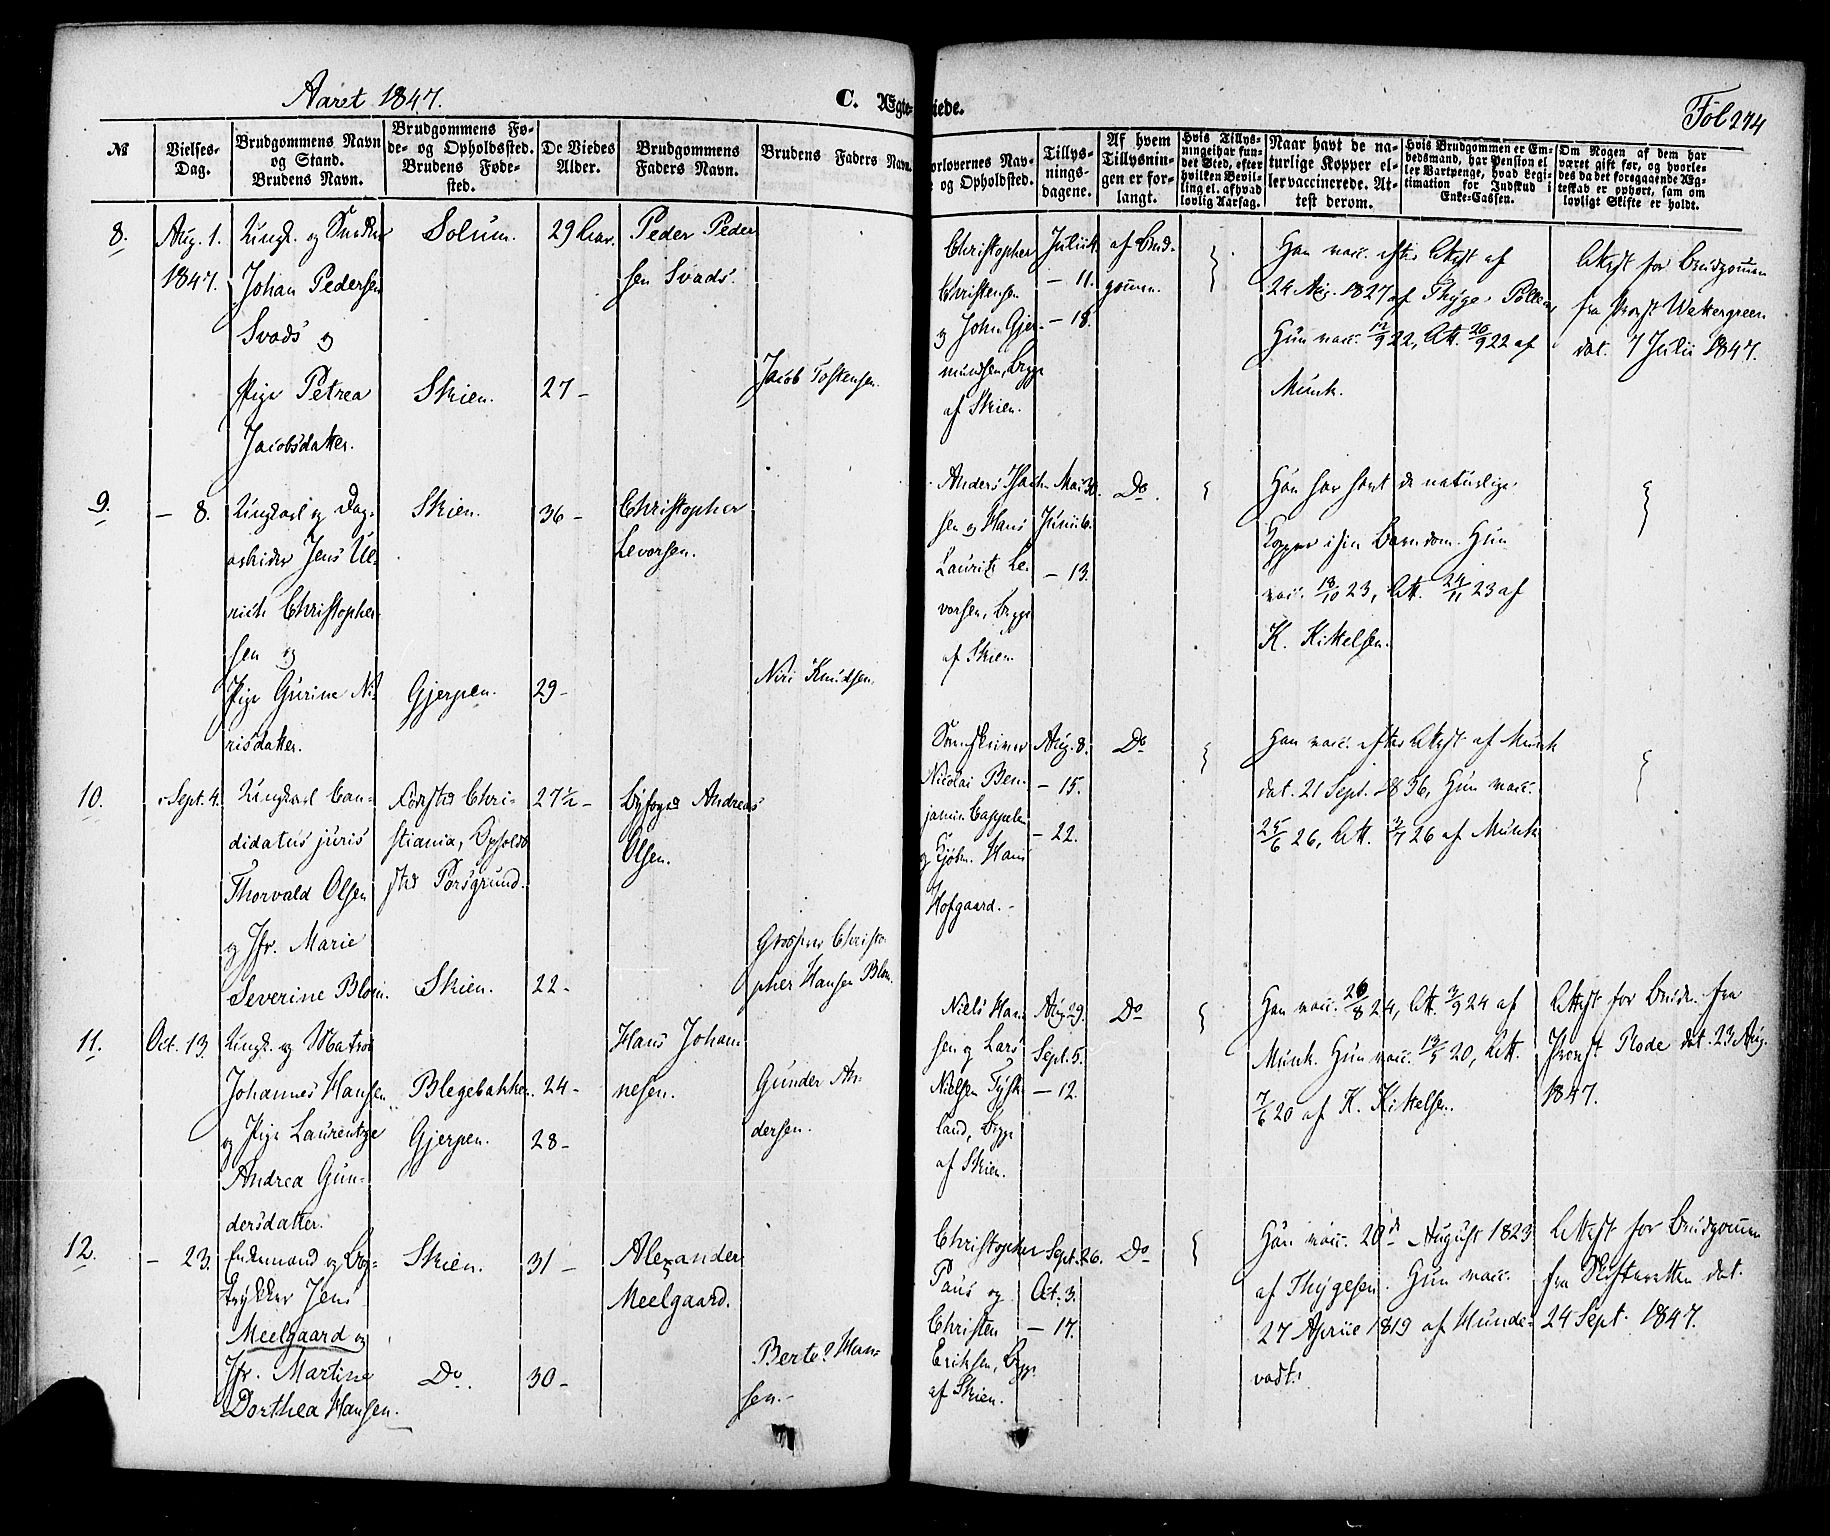 Aaret 1847.
C. Ægte-
viede.
Fol 274
№
Vielses-
Dag.
Brudgommens Navn
og Stand.
Brudens Navn.
Brudgommens Fø-
de- og Opholdsted.
Brudens Føde-
sted.
De Viedes
Alder.
Brudgommens
Faders Navn.
Brudens Faders Navn.
Forlovernes Nav-
og Opholdsted.
Tillys-
nings-
dagene.
Af hvem
Tillysnin-
gen er for-
langt.
Hvis Tillys-
ningei har fun-
det Sted, efter
hvilken Bevil-
ling el. af hvad
lovlig Aarsag.
Naar havt de na-
turlige Kopper el-
ler vaccinerede. At-
test derom.
Hvis Brudgommen er Em-
bedsmand, har Pension el
ler Vartpenge, hvad Legi-
timation for Indskud i
Enke-Cassen.
Om Nogen af dem har
været gift før, og hvorle-
des da det foregaaende Æg-
teskab er ophørt, sam om
lovligt Skifte er holdt.
8.
Aug. 1.
1847.
Ungk. og Snedker
Johan Pedersen
Svads og
Pige Petrea
Jacobsdatter.
Solum.
Skien.
29 Aar.
27 -
Peder Peder
sen Svads.
Jacob Toskensen.
Christopher
Christensen
og John Gjer-
mundsen, Begge
af Skien.
Julii 4.
- 11.
- 18.
af Brud-
gommen.
Han vacc. efter Attest af
24 Aug. 1827 af Thyge
Hun vacc. 12/9 22, Att. 26/9 22 af
Munk.
Attest for Brudgommen
fra Provst Wettergreen
dat. 7 Julii 1847.
9.
- 8.
Ungkarl og Dag-
arbider Jens Ul-
rich Christopher-
sen og
Pige Gurine Ni-
risdatter.
Skien.
Gjerpen.
36 -
29 -
Christopher
Levorsen.
Niri Knudsen.
Anders Isach-
sen og Hans
Lauritz Le-
vorsen, Begge
af Skien.
Mai 30.
Junii 6.
- 13.
Do.
Han har havt de naturlige
Kopper i sin Barndom. Hun
vacc. 18/10 23, Att. 24/11 23 af
K. Kittelsen.
10.
Sept. 4.
Ungkarl Can-
didatus juris
Thorvald Olsen
og Jfr. Marie
Severine Blom.
Fødested Chri-
stiania, Opholds
sted Porsgrund.
Skien.
27½ -
22 -
Byfoged Andreas
Olsen.
Grosserer Christo-
pher Hansen Blom.
Sorenskriver
Nicolai Ben-
jamin Cappelen
og Kjøbm. Hans
Hofgaard. -
Aug. 8.
- 15.
- 22.
Do
Han vacc. efter Attest af Munk
dat. 21 Sept. 1836, Hun vacc.
25/6 26, Att. 3/7 26 af Munk
11.
Oct. 13.
Ungk. og Matros
Johannes Hansen
og Pige Laurentze
Andrea Gun-
dersdatter.
Blegebakken.
Gjerpen.
24 -
28 -
Hans Johan-
nesen.
Gunder An-
dersen.
Niels Han-
sen og Lars
Nielsen Tysk-
land, Begge
af Skien.
Aug. 29.
Sept. 5.
- 12.
Do
Han vacc. 26/8 24, Att. 3/9 24 af
Munk. Hun vacc. 19/5 20, Att.
7/6 20 af K. Kittelsen.
Attest for Bruden fra
Provst Rode dat. 23 Aug.
1847.
12.
- 23.
Enkemand og Bog-
trykker Jens
Meelgaard og
Jfr. Martine
Dorthea Hansen.
Skien.
Do.
31 -
30 -
Alexander
Meelgaard.
Bertel Han-
sen. -
Christopher
Paus og
Christen
Eriksen, Begge
af Skien.
Sept. 26.
Oct. 3.
- 17.
Do
Han vacc. 20de August 1823
af Thygesen. Hun vacc.
27 April 1819 af Hunde-
vadt.
Attest for Brudgommen
fra Skifteretten dat.
24 Sept. 1847.